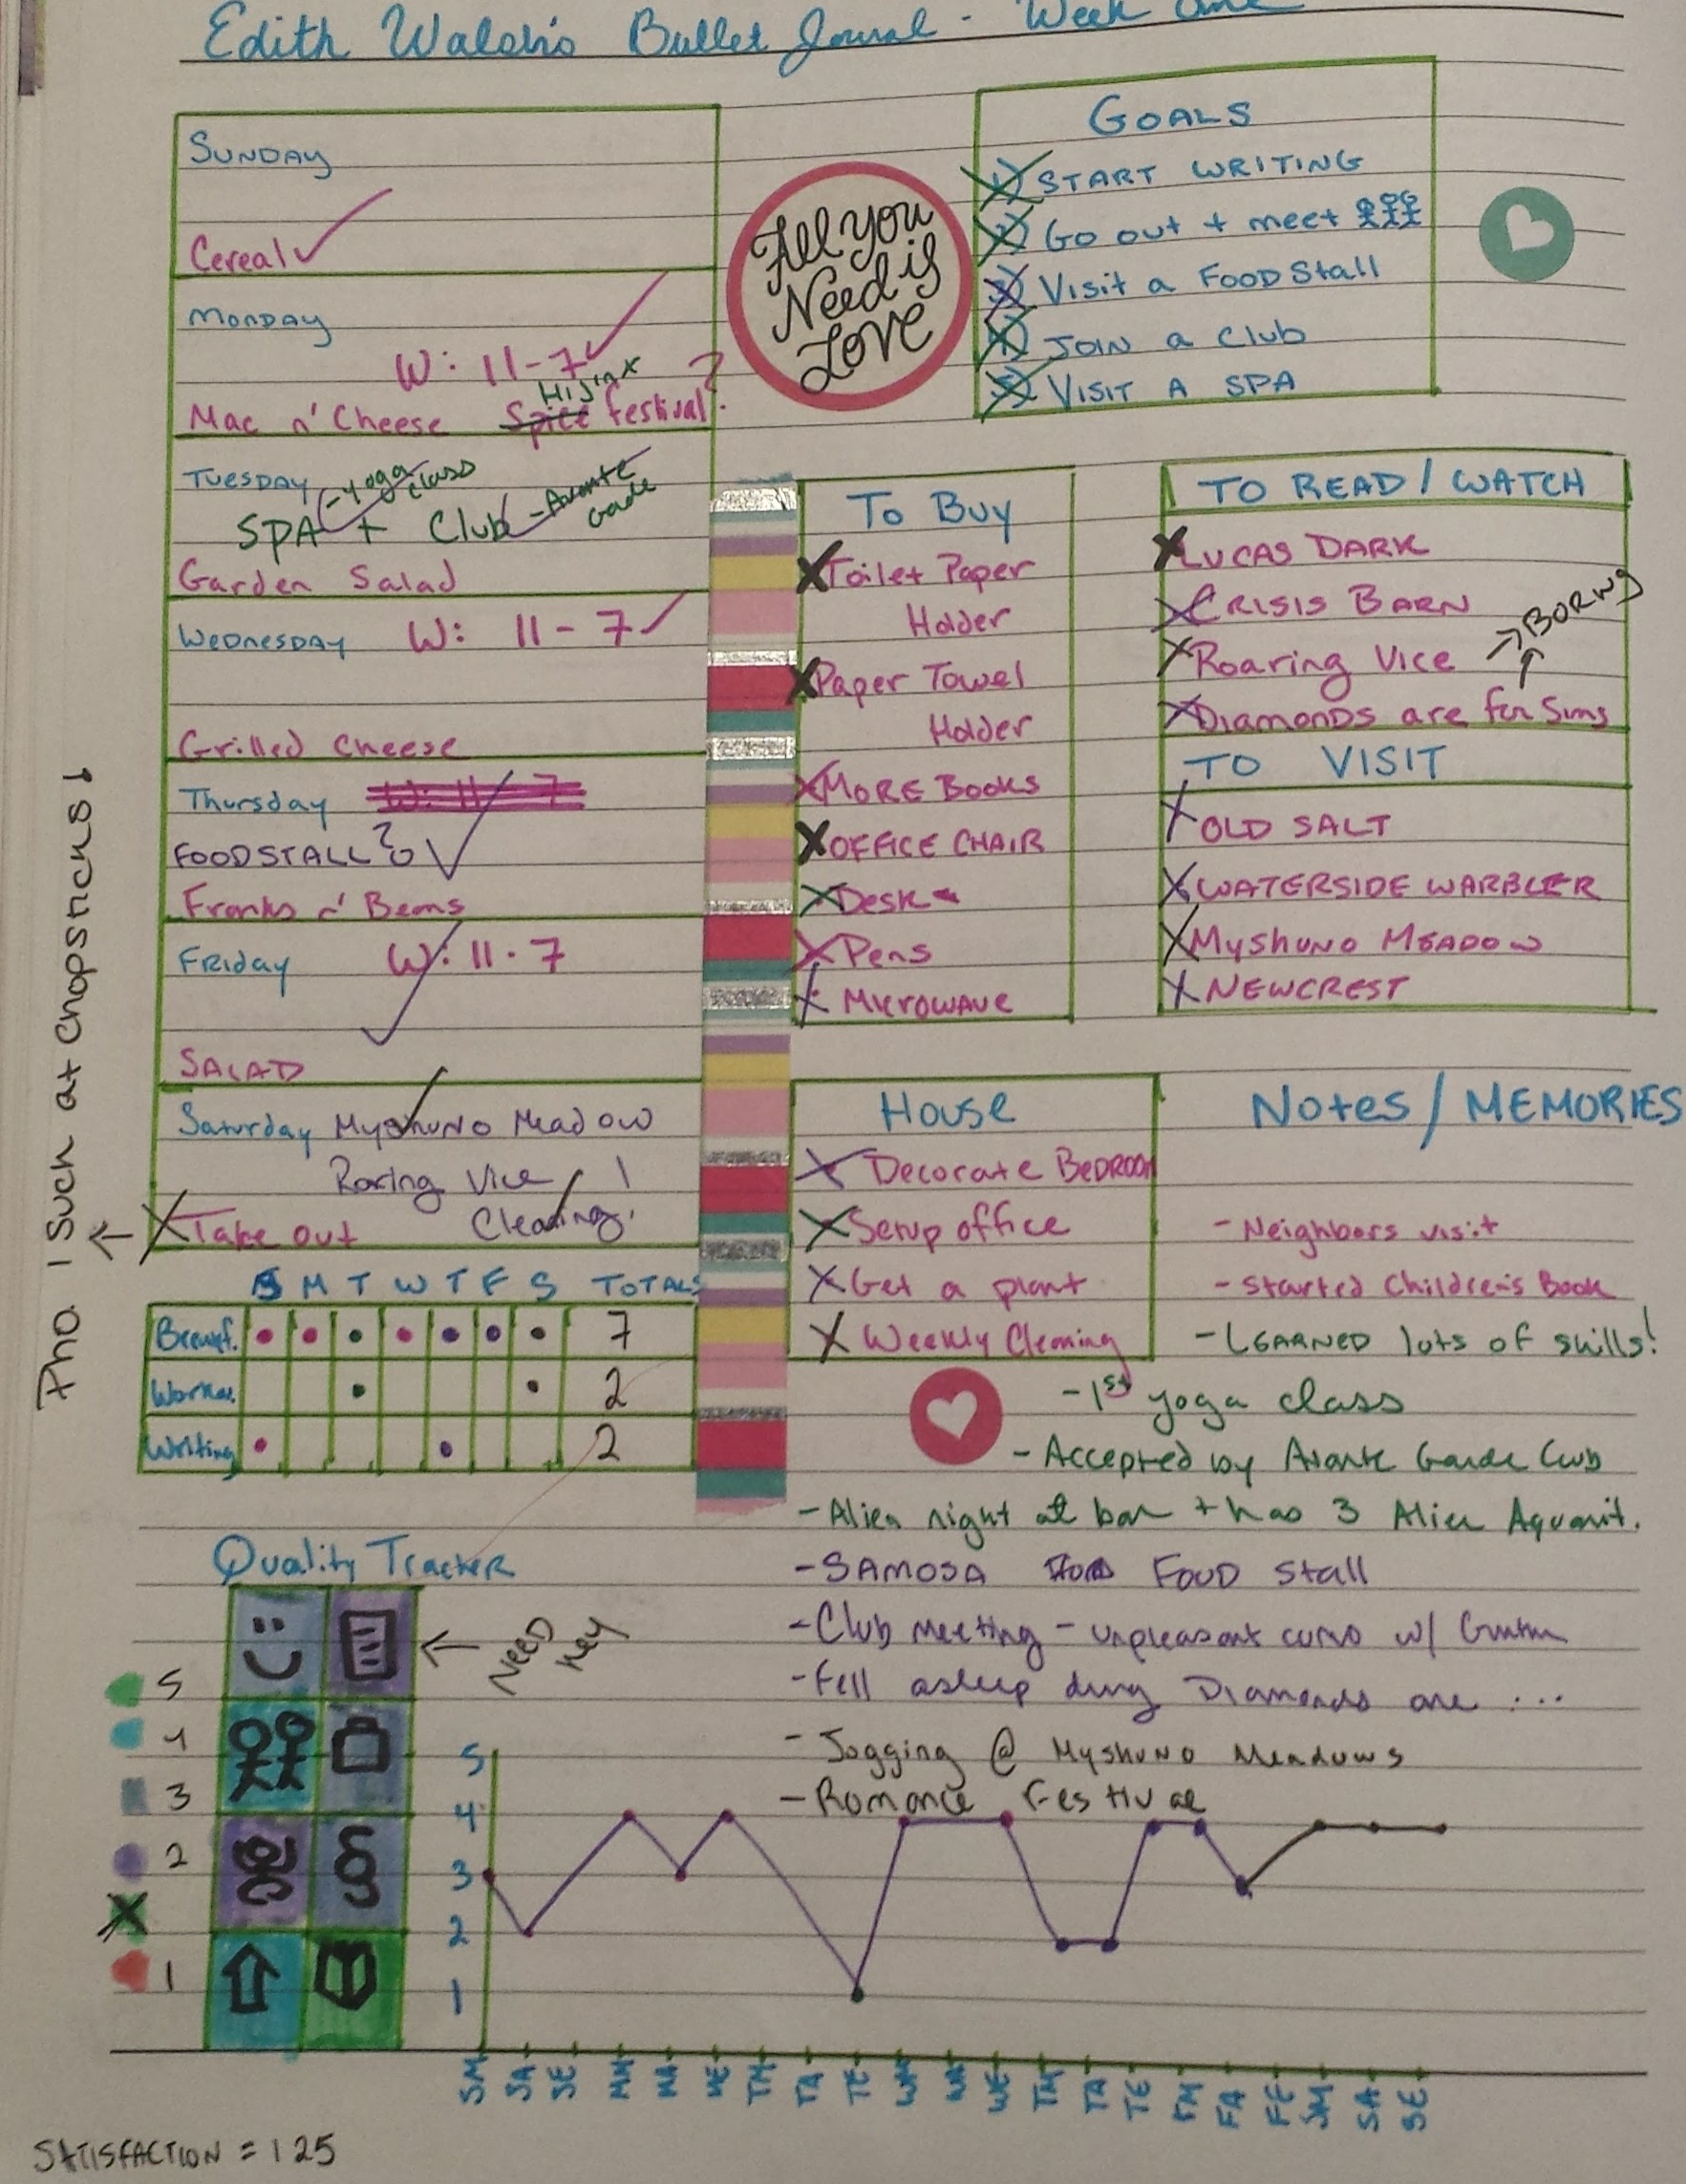 Edith Walsh's Bullet Journal - Week One
SUNDAY
Cereal
MONDAY
W: 11-7
Hijinx
Mac n' Cheese Spice festival?
TUESDAY
-yoga class
-Avante Garde
SPA + Club
Garden Salad
WEDNESDAY W: 11-7
Grilled Cheese
Thursday W: 11-7
FOODSTALL?
Franks n' Beans
FRIDAY W: 11-7
SALAD
Saturday Myshuno Meadow
Roring Vice
Cleaning!
Take out
Pho. I Suck at chopsticks!
All you
Need is
Love
GOALS
1) START WRITING
2) Go out + meet
3) Visit a FOOD Stall
4) JOIN a Club
5) VISIT A SPA
To Buy
Toilet Paper
Holder
Paper Towel
Holder
MORE BOOKS
OFFICE CHAIR
Desk
Pens
MICROWAVE
TO READ / WATCH
LUCAS DARK
CRISIS BARN
Roaring Vice → BORING
DIAMONDS are for Sims
TO VISIT
OLD SALT
WATERSIDE WARBLER
MYSHUNO MEADOW
NEWCREST
House
Decorate BEDROOM
Setup office
Get a plant
Weekly Cleaning
Notes / MEMORIES
- Neighbors visit
- Started Children's Book
- LEARNED lots of skills!
- 1st yoga class
- Accepted by Avante Garde Club
- Alien night at bar + has 3 Alien Aquanit.
- SAMOSA FOOD Stall
- Club Meeting - unpleasant convo w/
- Fell asleep durng Diamonds are ...
- Jogging @ Myshuno Meadows
- Romance Festival
S M T W T F S TOTALS
Breakf. 7
2
Writing 2
Quality Tracker
NEED KEY
5
4
3
2
1
5
4
3
2
1
SM SA SE MM MA ME TM TA TE WM WA WE TM TA TE FM FA FE SM SA SE
SATISFACTION = 125